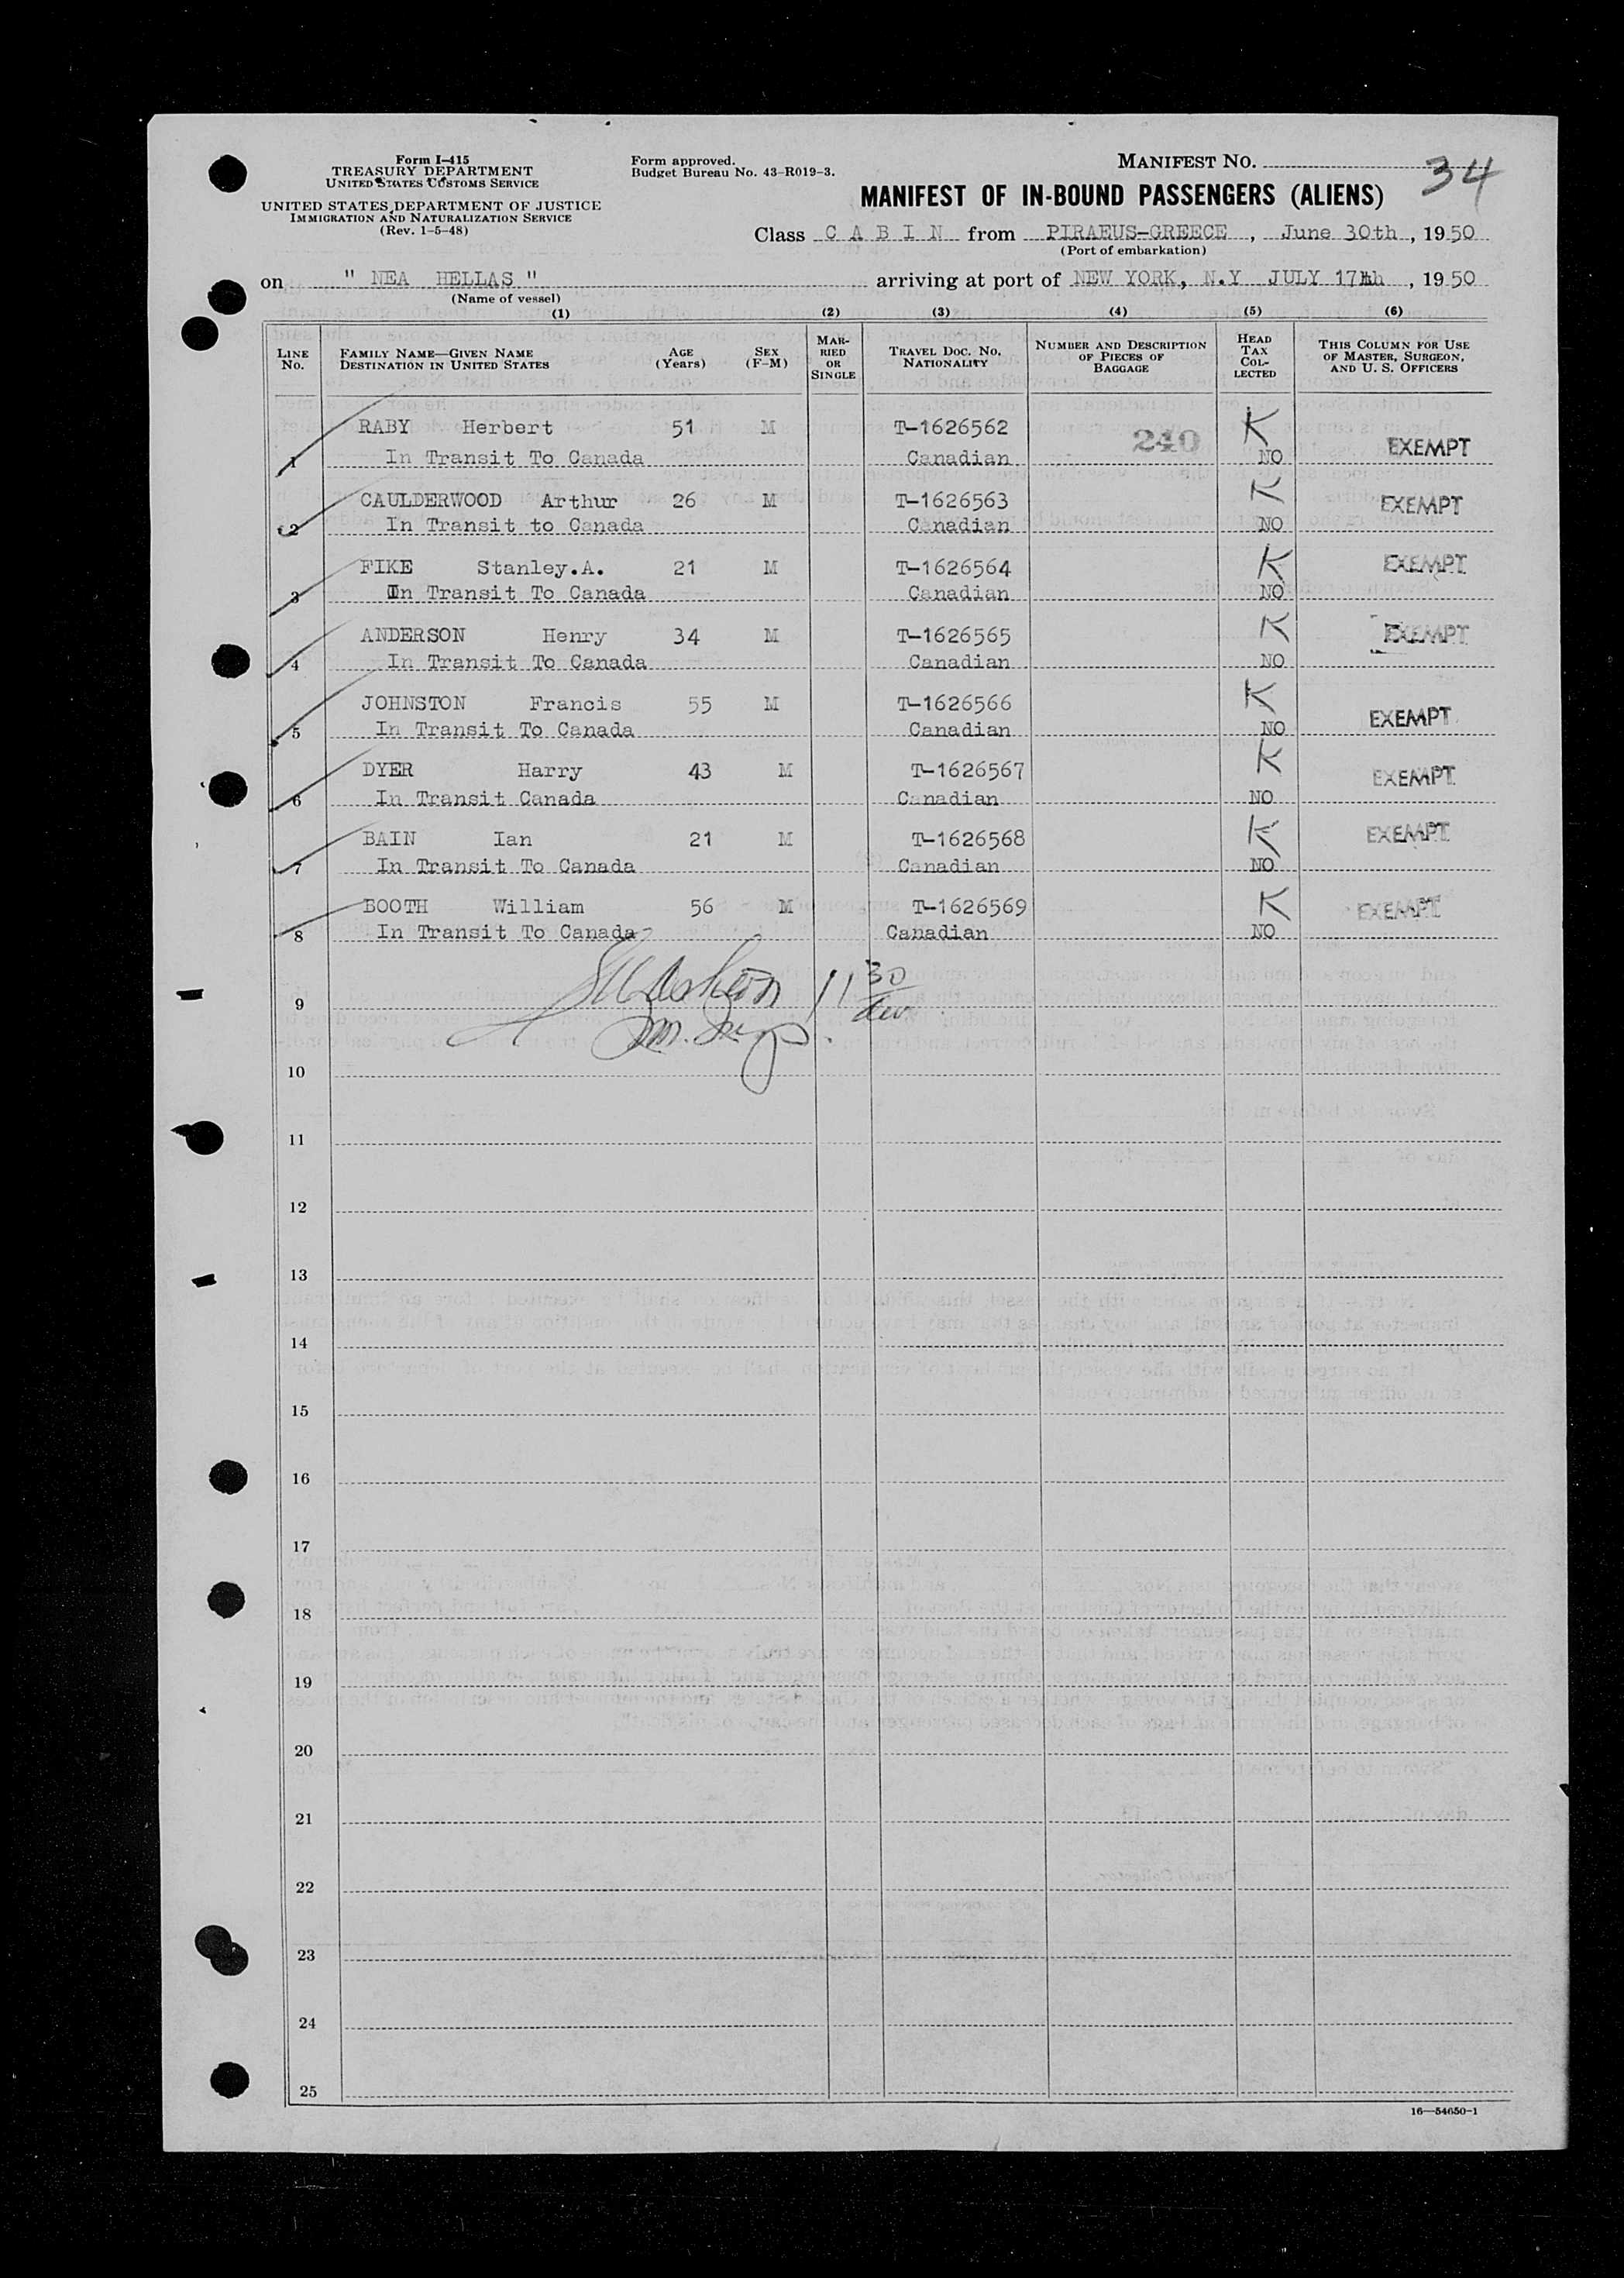 Form I-415
TREASURY DEPARTMENT
UNITED STATES CUSTOMS SERVICE
UNITED STATES DEPARTMENT OF JUSTICE
IMMIGRATION AND NATURALIZATION SERVICE
(Rev. 1-5-48)
Form approved.
Budget Bureau No. 43-R019-3.
MANIFEST NO. 34
MANIFEST OF IN-BOUND PASSENGERS (ALIENS)
Class C A B I N from PIRAEUS-GREECE, June 30th, 1950
(Port of embarkation)
on " NEA HELLAS " arriving at port of NEW YORK, N.Y JULY 17th, 1950
(Name of vessel)
(1) (2) (3) (4) (5) (6)
LINE No. FAMILY NAME—GIVEN NAME DESTINATION IN UNITED STATES AGE (Years) SEX (F-M) MARRIED OR SINGLE TRAVEL DOC. NO. NATIONALITY NUMBER AND DESCRIPTION OF PIECES OF BAGGAGE HEAD TAX COLLECTED THIS COLUMN FOR USE OF MASTER, SURGEON, AND U. S. OFFICERS
RABY Herbert 51 M T-1626562 240 K EXEMPT
1 In Transit To Canada Canadian NO
CAULDERWOOD Arthur 26 M T-1626563 K EXEMPT
2 In Transit to Canada Canadian NO
FIKE Stanley.A. 21 M T-1626564 K EXEMPT
3 In Transit To Canada Canadian NO
ANDERSON Henry 34 M T-1626565 K EXEMPT
4 In Transit To Canada Canadian NO
JOHNSTON Francis 55 M T-1626566 K EXEMPT
5 In Transit To Canada Canadian NO
DYER Harry 43 M T-1626567 K EXEMPT
6 In Transit Canada Canadian NO
BAIN Ian 21 M T-1626568 K EXEMPT
7 In Transit To Canada Canadian NO
BOOTH William 56 M T-1626569 K EXEMPT
8 In Transit To Canada Canadian NO
11 30
9
10
11
12
13
14
15
16
17
18
19
20
21
22
23
24
25
16—54650-1